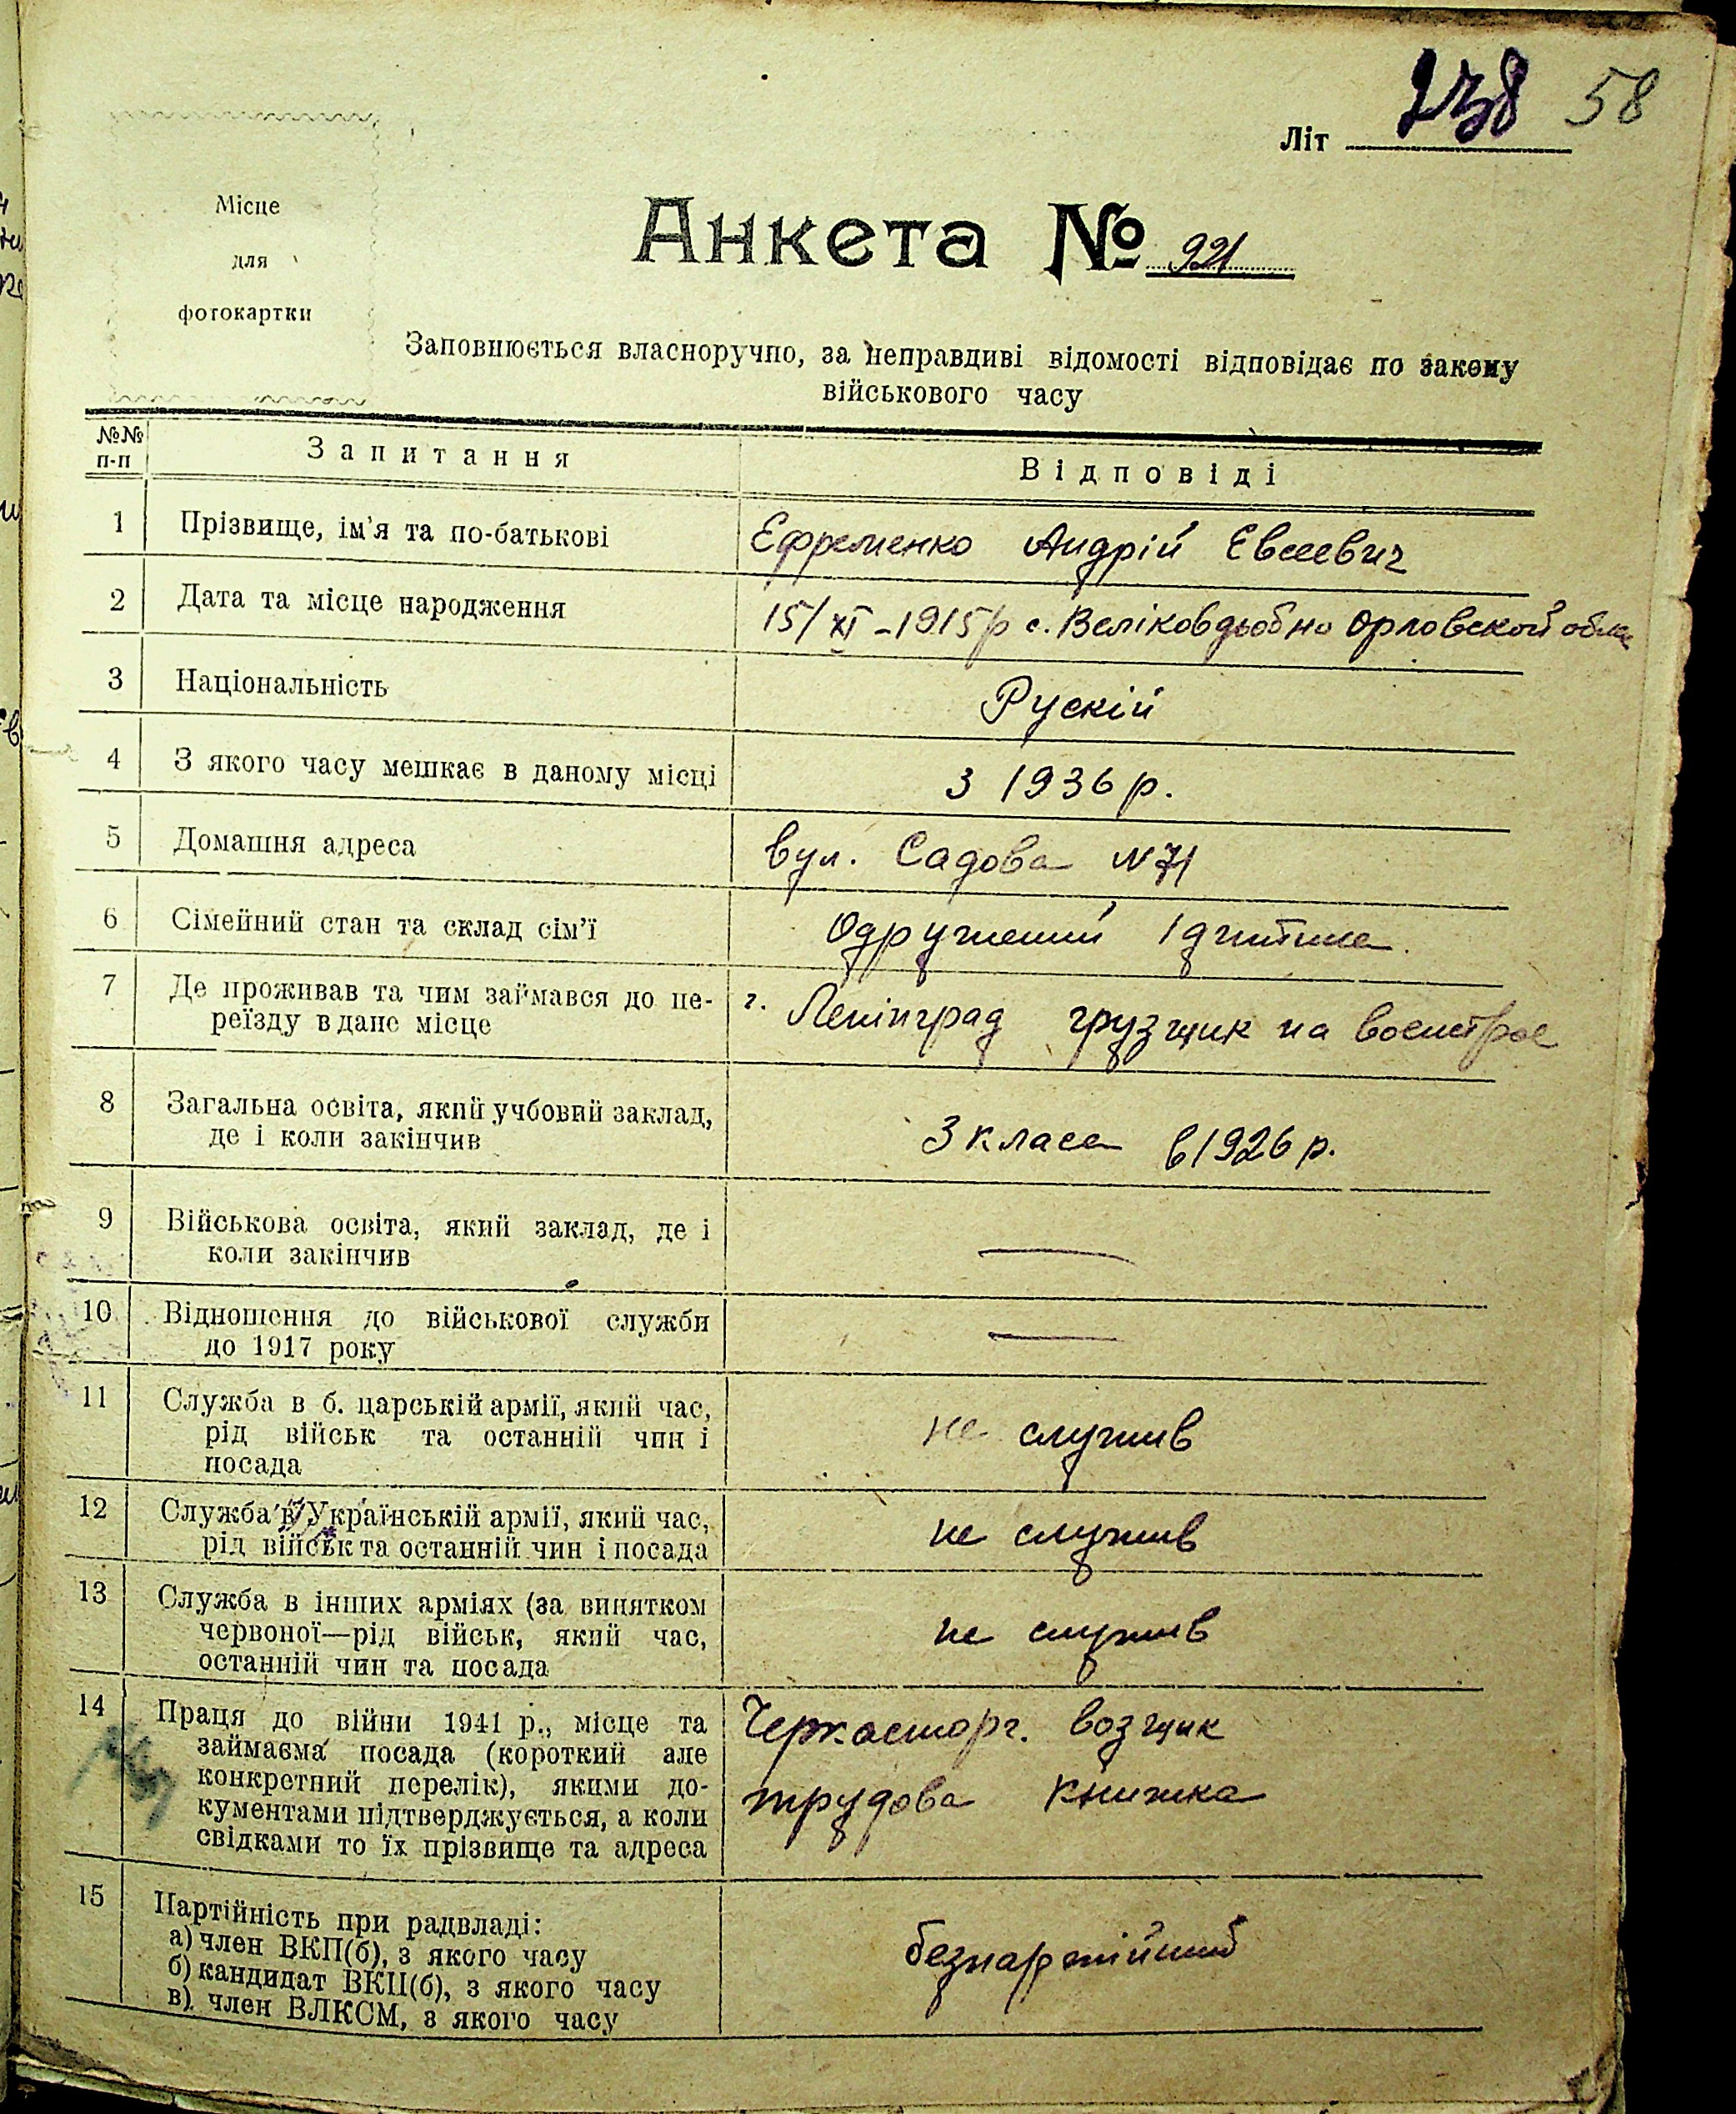 238 58
Літ
Місце
для
фотокартки
Анкета № 921
Заповнюється власноручно, за неправдиві відомості відповідає по закону
військового часу
№№ п-п
Запитання
Відповіді
1 Прізвище, ім'я та по-батькові Ефременко Андрій Євсеевич
2 Дата та місце народження 15/XI - 1915 р с. Орловской
3 Національність Рускій
4 З якого часу мешкає в даному місці з 1936 р.
5 Домашня адреса вул. Садова N 71
6 Сімейний стан та склад сім'ї Одружений 1 дитина
7 Де проживав та чим займався до пе- г. Ленінград грузщик на военстрое
реїзду в дане місце
8 Загальна освіта, який учбовий заклад, 3 класа в 1926 р.
де і коли закінчив
9 Військова освіта, який заклад, де і —
коли закінчив
10 Відношення до військової служби —
до 1917 року
11 Служба в б. царській армії, який час, не служив
рід військ та останній чин і
посада
12 Служба в Українській армії, який час, не служив
рід військ та останній чин і посада
13 Служба в інших арміях (за винятком не служив
червоної—рід військ, який час,
останній чин та посада
14 Праця до війни 1941 р., місце та Черкасторг. возщик
займаєма посада (короткий але
конкретний перелік), якими до- трудова книжка
кументами підтверджується, а коли
свідками то їх прізвище та адреса
15 Партійність при радвладі:
а) член ВКП(б), з якого часу безпартійний
б) кандидат ВКП(б), з якого часу
в) член ВЛКСМ, з якого часу